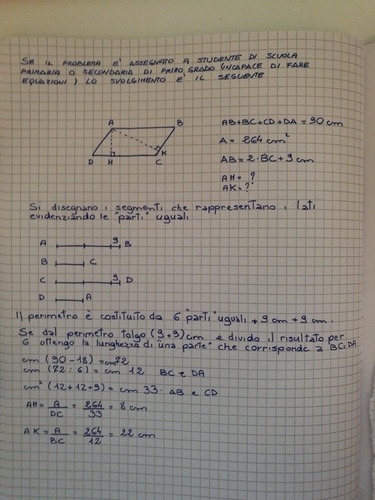 SE IL PROBLEMA E' ASSEGNATO A STUDENTE DI SCUOLA
PRIMARIA O SECONDARIA DI PRIMO GRADO (INCAPACE DI FARE
EQUAZIONI) LO SVOLGIMENTO E' IL SEGUENTE
A B
K
D H C
AB+BC+CD+DA = 90 cm
A = 264 cm²
AB = 2·BC+9 cm
AH = ?
AK = ?
Si disegnano i segmenti che rappresentano i lati
evidenziando le "parti" uguali
A 9 B
B C
C 9 D
D A
Il perimetro è costituito da 6 "parti" uguali + 9 cm + 9 cm.
Se dal perimetro tolgo (9+9) cm e divido il risultato per
6 ottengo la lunghezza di una "parte" che corrisponde a BC=DA
cm (90-18) = cm 72
cm (72 : 6) = cm 12 BC e DA
cm² (12+12+9) = cm 33 · AB e CD
AH = A/DC = 264/33 = 8 cm
AK = A/BC = 264/12 = 22 cm